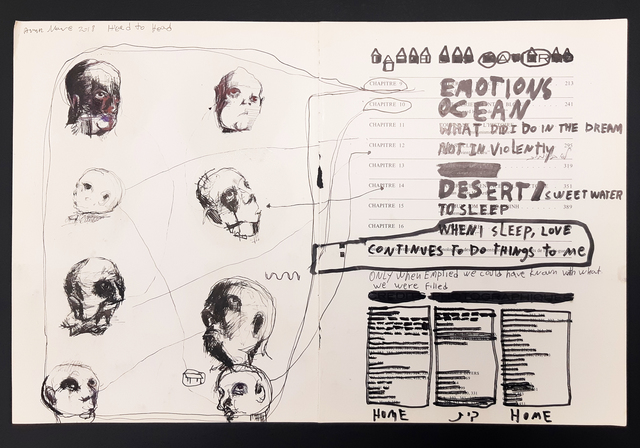 2018 Head to Head
CHAPITRE 9 EMOTIONS 213
CHAPITRE 10 OCEAN 241
CHAPITRE 11 WHAT DID I DO IN THE DREAM
CHAPITRE 12 NOT IN VIOLENTLY
CHAPITRE 13 319
CHAPITRE 14 DESERT / SWEET WATER 351
CHAPITRE 15 TO SLEEP 369
CHAPITRE 16 WHEN I SLEEP, LOVE
CONTINUES TO DO THINGS TO ME
ONLY when Emptied we could have known with what
we were filled
HOME HOME